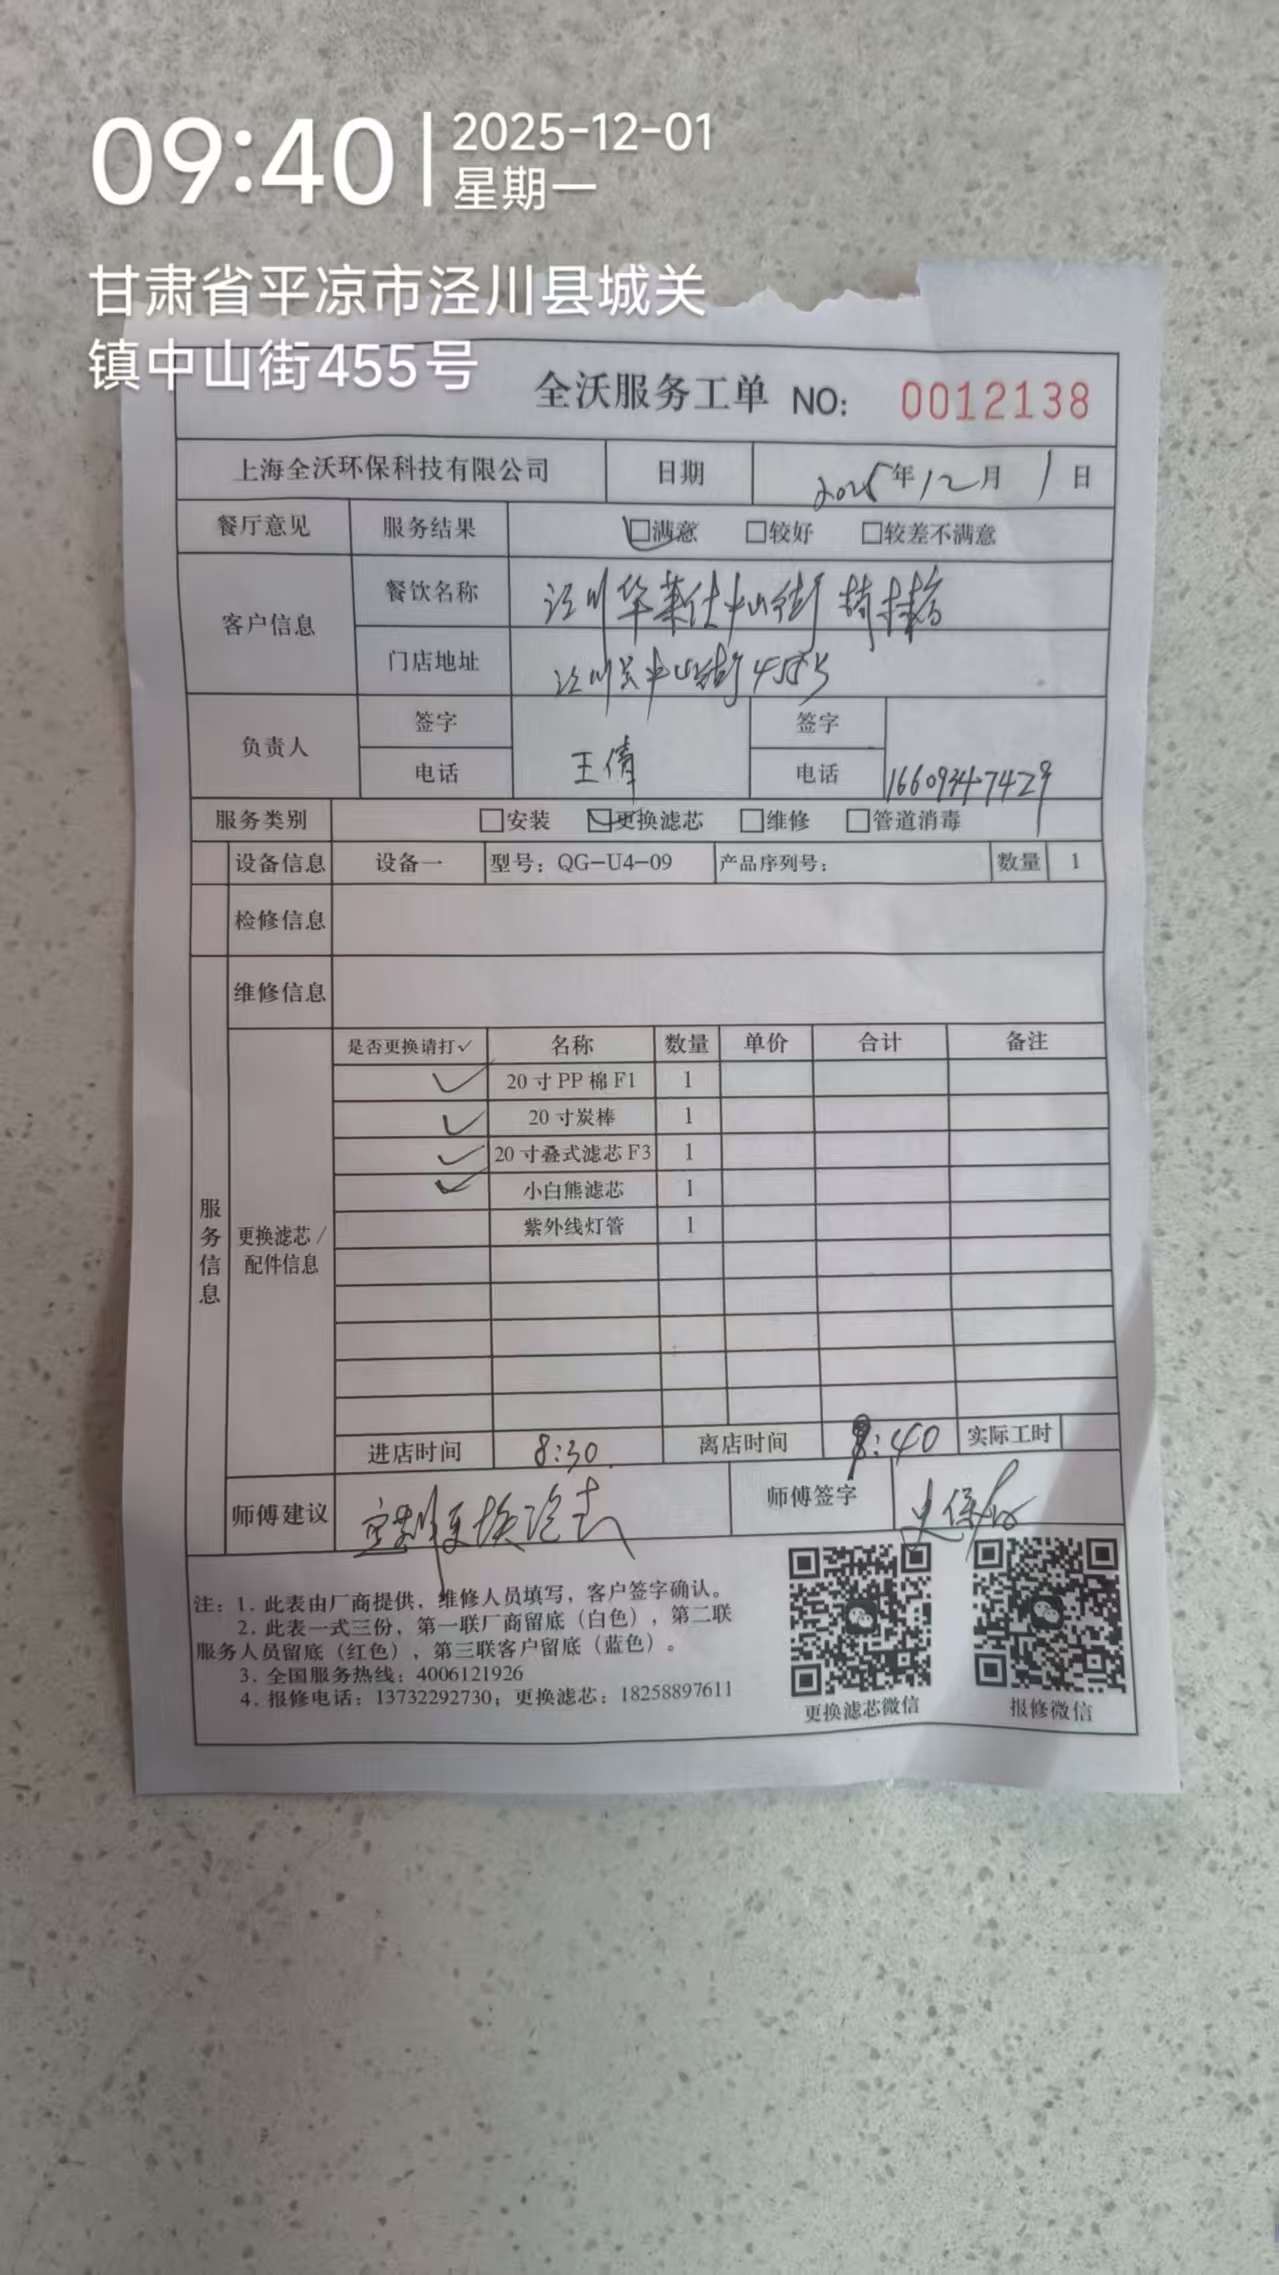 09:40
2025-12-01
星期一
甘肃省平凉市泾川县城关
镇中山街455号
全沃服务工单 NO: 0012138
上海全沃环保科技有限公司 日期 2025年12月1日
餐厅意见 服务结果 □满意 □较好 □较差不满意
客户信息 餐饮名称 泾川华莱仕中山街
门店地址 泾川县中山街455号
负责人 签字 签字
王倩
电话 电话 16609347429
服务类别 □安装 □更换滤芯 □维修 □管道消毒
设备信息 设备一 型号：QG-U4-09 产品序列号： 数量 1
检修信息
维修信息
是否更换请打✓ 名称 数量 单价 合计 备注
✓ 20寸PP棉F1 1
✓ 20寸炭棒 1
✓ 20寸叠式滤芯F3 1
✓ 小白熊滤芯 1
紫外线灯管 1
服务信息
更换滤芯/
配件信息
进店时间 8:30 离店时间 :40 实际工时
师傅建议 定期更换滤芯 师傅签字
注：1. 此表由厂商提供，维修人员填写，客户签字确认。
2. 此表一式三份，第一联厂商留底（白色），第二联
服务人员留底（红色），第三联客户留底（蓝色）。
3. 全国服务热线：4006121926
4. 报修电话：13732292730；更换滤芯：18258897611
更换滤芯微信 报修微信